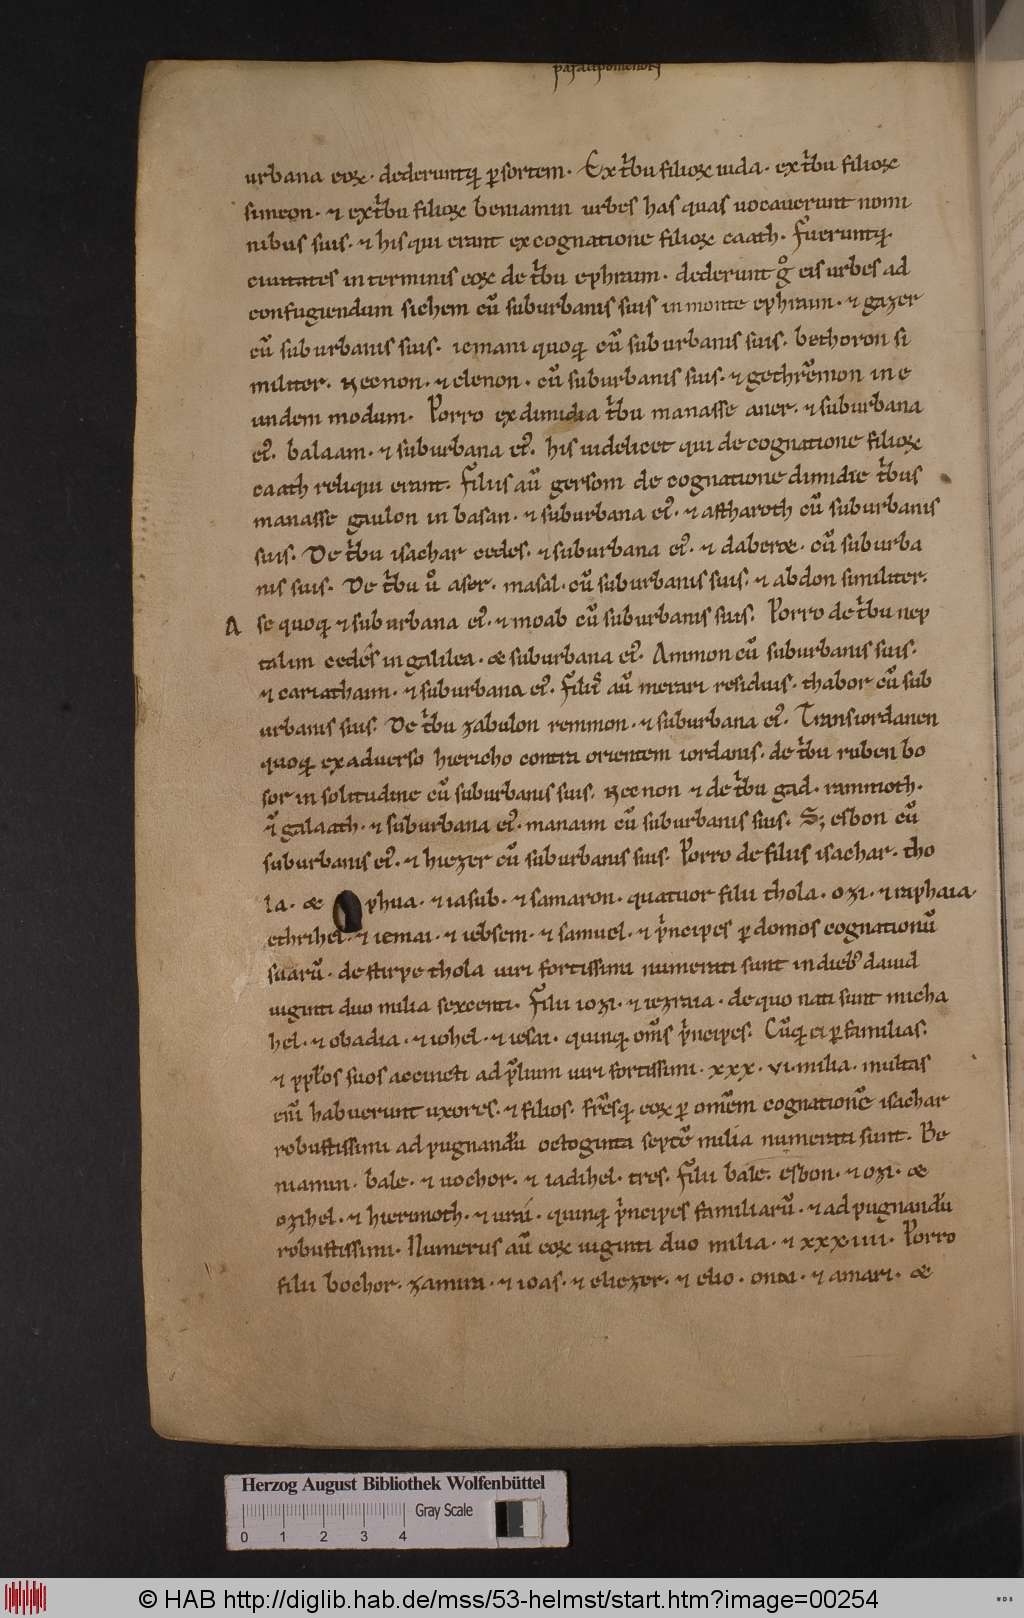 paralipomenon
urbana eoꝝ. dederuntꝗ ꝑ sortem. Ex tⁱbu filioꝝ iuda. ex tⁱbu filioꝝ
simeon. ⁊ ex tⁱbu filioꝝ beniamin urbes has quas uocauerunt nomi
nibus suis. ⁊ his qui erant ex cognatione filioꝝ caath. fueruntꝗ.
ciuitates in terminis eoꝝ de tⁱbu ephraim. dederunt gͦ eis urbes ad
confugiendum sichem cū suburbanis suis in monte ephraim. ⁊ gazer
cū suburbanis suis. iemani quoꝗ cū suburbanis suis. bethoron si
militer. Necnon. ⁊ elenon. cū suburbanis suis. ⁊ gethrēmon in e
undem modum. Porro ex dimidia tⁱbu manasse aner. ⁊ suburbana
eiꝰ. balaam. ⁊ suburbana eiꝰ. his uidelicet qui de cognatione filioꝝ
caath reliqui erant. filiis aū gersom de cognatione dimidie tⁱbus
manasse gaulon in basan. ⁊ suburbana eiꝰ. ⁊ astharoth cū suburbanis
suis. De tⁱbu isachar cedes. ⁊ suburbana eiꝰ. ⁊ daberæ. cū suburba
nis suis. De tⁱbu uͦ aser. masal. cū suburbanis suis. ⁊ abdon similiter.
A se quoꝗ ⁊ suburbana eiꝰ. ⁊ moab cū suburbanis suis. Porro de tⁱbu nep
talim cedes in galilea. æ suburbana eiꝰ. Ammon cū suburbanis suis.
⁊ cariathaim. ⁊ suburbana eiꝰ. filiis aū merari residuis. thabor cū sub
urbanis suis. De tⁱbu zabulon remmon. ⁊ suburbana eiꝰ. Transiordanen
quoꝗ ex aduerso hiericho contra orientem iordanis. de tⁱbu ruben bo
sor in solitudine cū suburbanis suis. Necnon ⁊ de tⁱbu gad. rammoth.
galaath. ⁊ suburbana eiꝰ. manaim cū suburbanis suis. S; esbon cū
suburbanis eiꝰ. ⁊ hiezer cū suburbanis suis. Porro de filiis isachar. tho
la. æ phua. ⁊ iasub. ⁊ samaron. quatuor filii thola. ozi. ⁊ raphaia.
ethrihel. ⁊ iemai. ⁊ iebsem. ⁊ samuel. ⁊ pⁱncipes ꝑ domos cognationū
suarū. de stirpe thola uiri fortissimi numerati sunt in diebꝰ dauid
uiginti duo milia sexcenti. filii iozi. ⁊ iezraia. de quo nati sunt micha
hel. ⁊ obadia. ⁊ iohel. ⁊ iesai. quinꝗ om̄s pⁱncipes. Cūꝗ ei ꝑ familias.
⁊ pplo̅s suos accincti ad p̄lium uiri fortissimi. xxx. vi. milia. multas
eni̅ habuerunt uxores. ⁊ filios. fr̄esꝗ eoꝝ ꝑ omēm cognationē isachar
robustissimi ad pugnandū octoginta septē milia numerati sunt. Be
niamin. bale. ⁊ uochor. ⁊ iadihel. tres. filii bale. esbon. ⁊ ozi. æ
ozihel. ⁊ hierimoth. ⁊ urai. quinꝗ pⁱncipes familiarū. ⁊ ad pugnandū
robustissimi. Numerus aū eoꝝ uiginti duo milia. ⁊ xxx.iiii. Porro
filii bochor. zamira. ⁊ ioas. ⁊ eliezer. ⁊ elio. ⁊ amari. æ
Herzog August Bibliothek Wolfenbüttel
Gray Scale
0 1 2 3 4
© HAB http://diglib.hab.de/mss/53-helmst/start.htm?image=00254